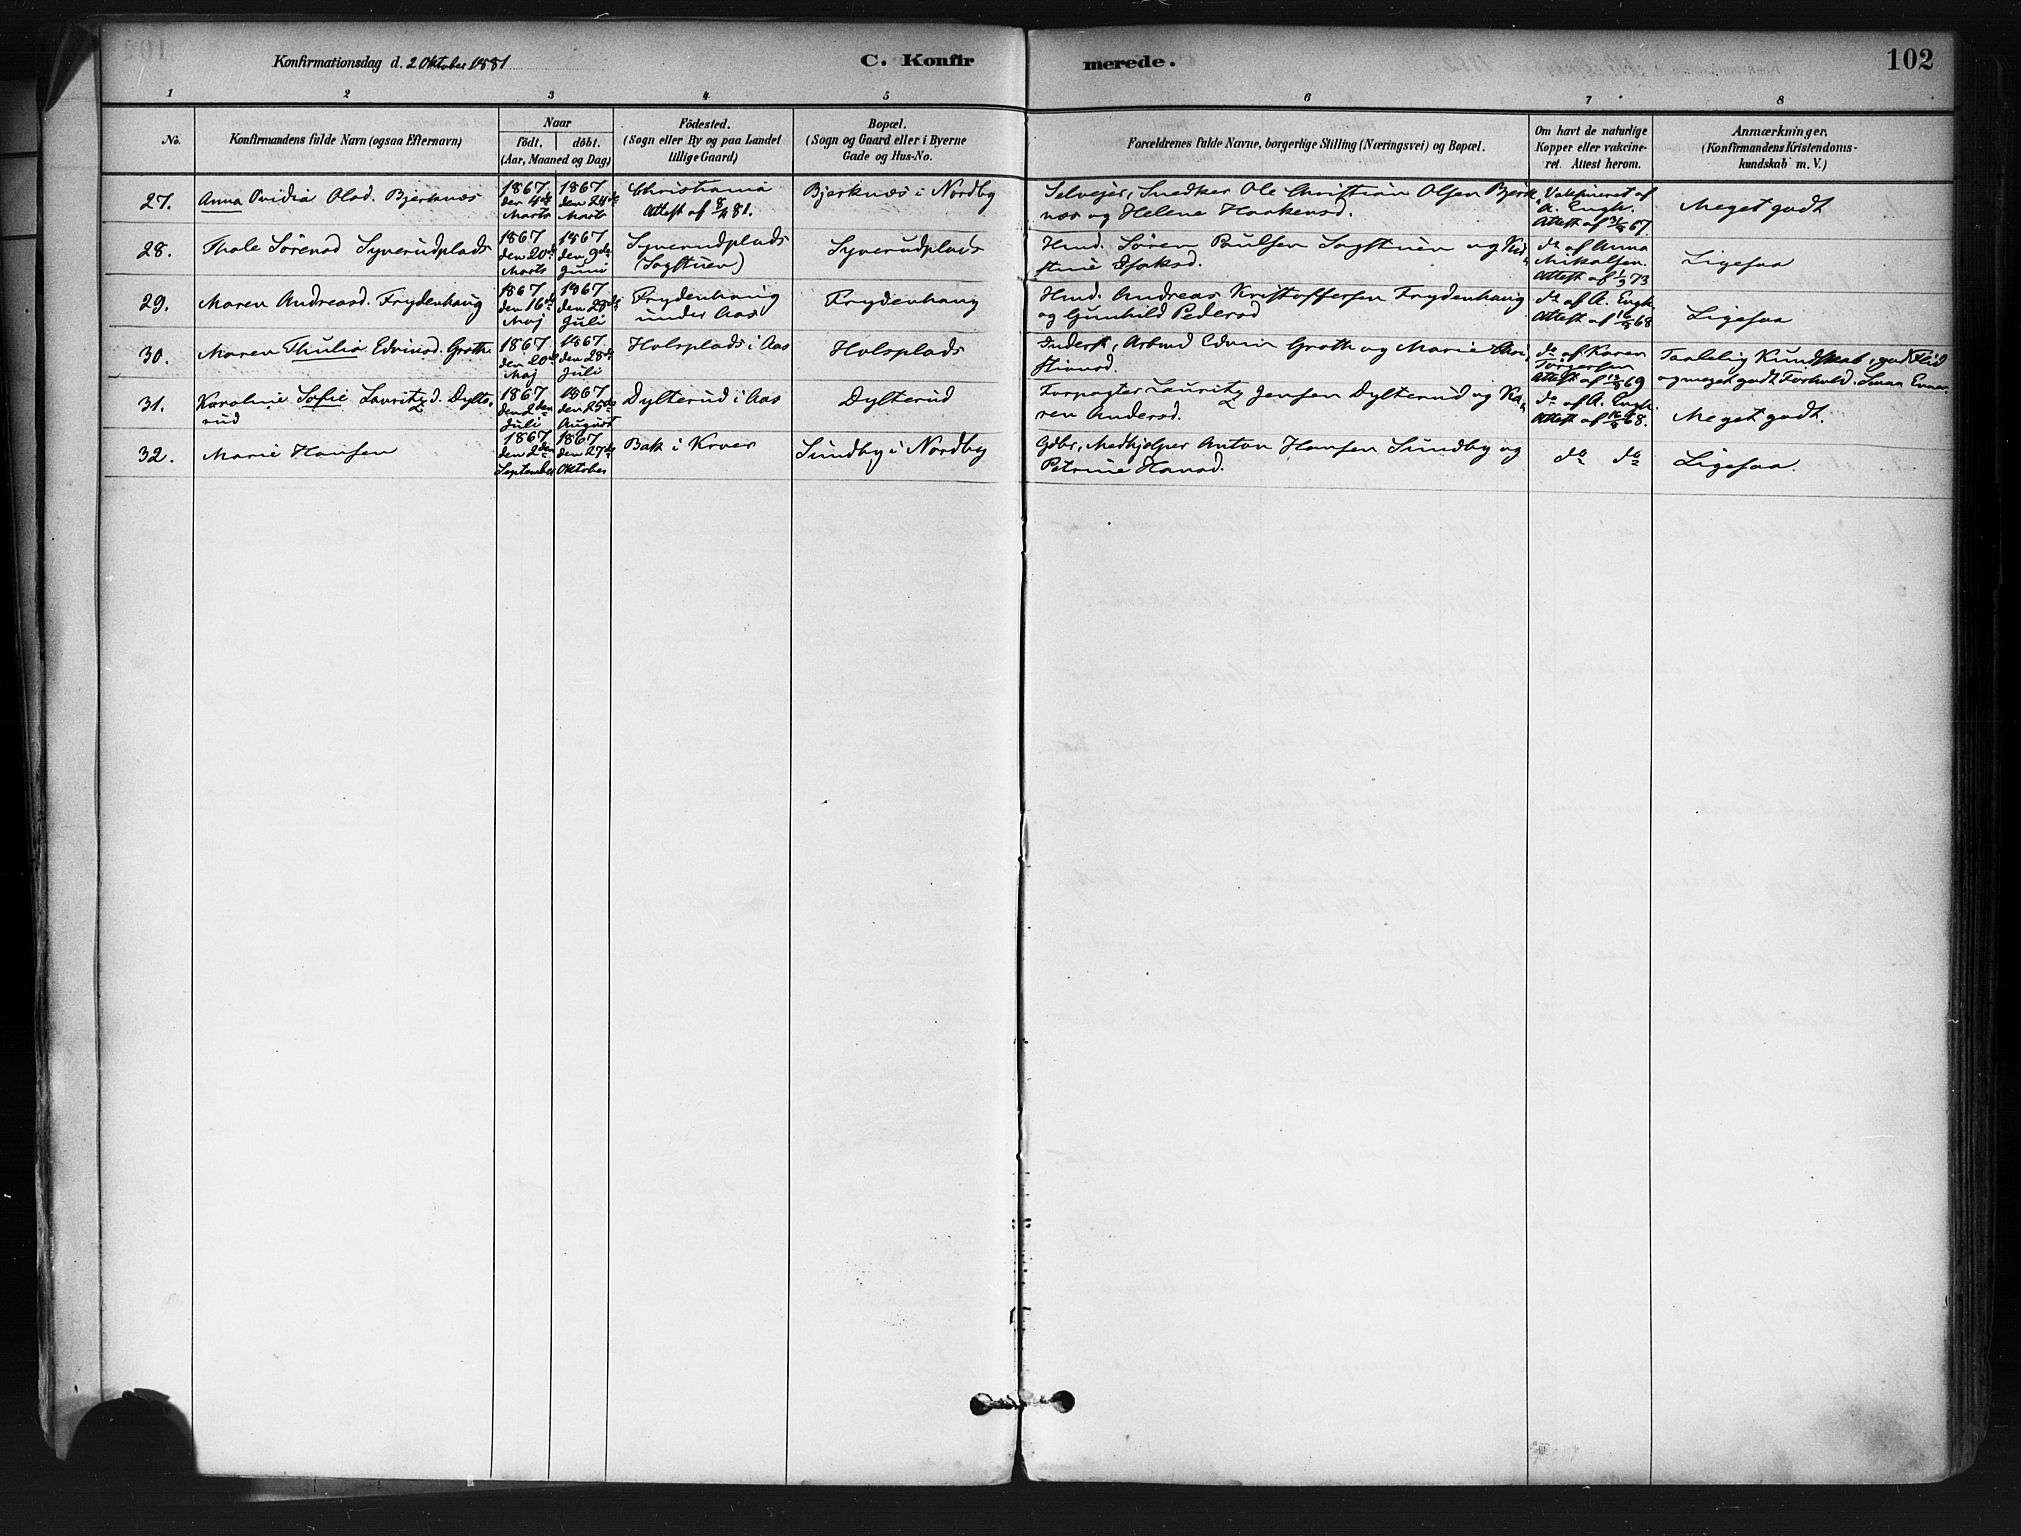 Konfirmationsdag d. 2 Oktober 1881
C. Konfirmerede.
102
1 2 3 4 5 6 7 8
No.
Konfirmandens fulde Navn (ogsaa Efternavn)
Naar
födt. döbt.
(Aar, Maaned og Dag)
Födested.
(Sogn eller By og paa Landet
tillige Gaard)
Bopæl.
(Sogn og Gaard eller i Byerne
Gade og Hus-No.
Forældrenes fulde Navne, borgerlige Stilling (Næringsvei) og Bopæl.
Om havt de naturlige
Kopper eller vakcine-
ret. Attest herom.
Anmærkninger,
(Konfirmandens Kristendoms-
kundskab m. V.)
27.
Anna Ovidia Olsd. Bjerknæs
1867.
den 4de
Marts
1867
den 24de
Marts
Christiania
Attest af 8/4 81.
Bjerknæs i Nordby
Selvejer, Snedker Ole Christian Olsen Bjerk
næs og Helene Haakensd.
Vakcineret af
A. Engh.
Attest af 67.
Meget godt
28.
Thale Sörensd Syverudplads
1867
den 20de
Marts
1867
den 9de
Juni
Syverudplads
(Sagstuen)
Syverudplads
Hmd. Sören Paulsen Sagstuen og Kir-
stine Isaksd.
do af Anna
Mikalsen.
Attest af 73
Ligesaa
29.
Maren Andreasd. Frydenhaug
1867
den 16de
Maj
1867
den 28de
Juli
Frydenhaug
under Aas
Frydenhaug
Hmd. Andreas Kristoffersen Frydenhaug
og Gunhild Pedersd
do af A. Engh.
Attest af 68
Ligesaa
30.
Maren Thulia Edvinsd. Groth
1867.
den 20de
Maj
1867.
den 28de
Juli
Holsplads i Aas
Holsplads
Inderst, Arbmd Edvin Groth og Marie Chri-
stiansd.
do af Karen
Torgersen
Attest af 69
Taalelig Kundskab, god Flid
og meget godt Forhold. Smaa Evner.
31.
Karoline Sofie Lauritzd. Dylte-
rud
1867
den 2den
Juli
1867
den 25de
August
Dylterud i Aas
Dylterud
Forpagter Lauritz Jensen Dylterud og Ka-
ren Andersd.
do af A. Engh.
Attest af 68.
Meget godt.
32.
Marie Hansen
1867
den 2den
September
1867
den 27de
Oktober
Bak i Kroer
Sundby i Nordby
Gdbr, Medhjælper Anton Hansen Sundby og
Petrine Hansd.
do do
Ligesaa.